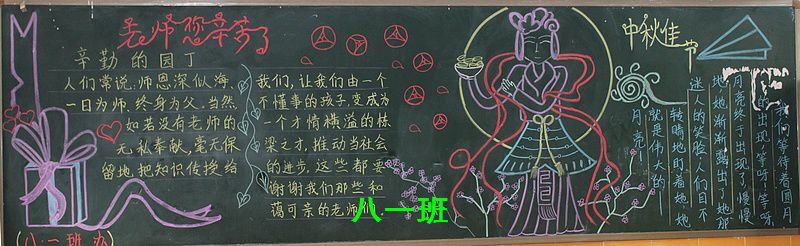 老师您辛苦了
辛勤的园丁
人们常说:师恩深似海、
一日为师,终身为父。当然,
如若没有老师的
无私奉献,毫无保
留地,把知识传授给
我们,让我们由一个
不懂事的孩子,变成为
一个才情横溢的栋
梁之才,推动当社会
的进步,这些都要
谢谢我们那些和
蔼可亲的老师们
八·一班办
中秋佳节
我们等待着圆月
的出现,等呀!等呀,
月亮终于出现了,慢慢
地,她渐渐露出了她那
迷人的笑脸,人们目不
转睛地盯着她,她
就是伟大的一
月亮
八一班